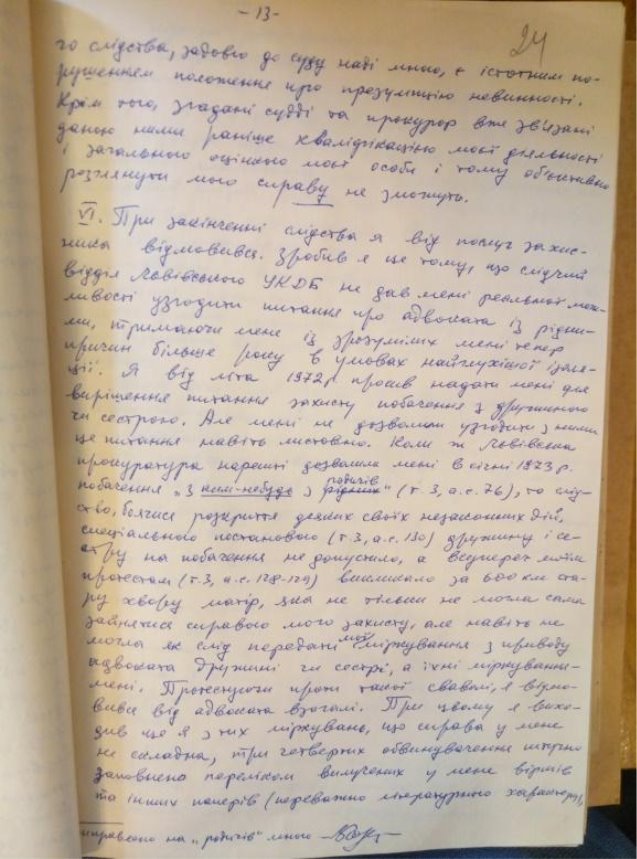 - 13 -
24
го слідства, задовго до суду наді мною, є істотним по-
рушенням положення про презумпцію невинності.
Крім того, згадані судді та прокурор вже зв'язані
даною ними раніше кваліфікацією моєї діяльності
і загальною оцінкою моєї особи і тому об'єктивно
розглянути мою справу не зможуть.
VI. При закінченні слідства я від послуг захис-
ника відмовився. Зробив я це тому, що слідчий
відділ Львівського УКДБ не дав мені реальної мож-
ливості узгодити питання про адвоката із рідни-
ми, тримаючи мене із зрозумілих мені тепер
причин більше року в умовах найглухішої ізоля-
ції. Я від літа 1972 р. просив надати мені для
вирішення питання захисту побачення з дружиною
чи сестрою. Але мені не дозволили узгодити з ними
це питання навіть листовно. Коли ж Львівська
прокуратура нарешті дозволила мені в січні 1973 р.
побачення „з ким-небудь з рідних родичів" (т. 3, а.с. 76), то слід-
ство, боячися розкриття деяких своїх незаконних дій,
спеціальною постановою (т. 3, а.с. 130) дружину і се-
стру на побачення не допустило, а всупереч моїм
протестам (т. 3, а.с. 128-129) викликало за 600 км ста-
ру хвору матір, яка не тільки не могла сама
зайнятися справою мого захисту, але навіть не
могла як слід передати мої міркування з приводу
адвоката дружині чи сестрі, а їхні міркування -
мені. Протестуючи проти такої сваволі, я відмо-
вився від адвоката взагалі. При цьому я вихо-
див ще й з тих міркувань, що справа у мене
не складна, три четвертих обвинувачення штучно
заповнено переліком вилучених у мене віршів
та інших паперів (переважно літературного характеру),
виправлено на „родичів" мною -